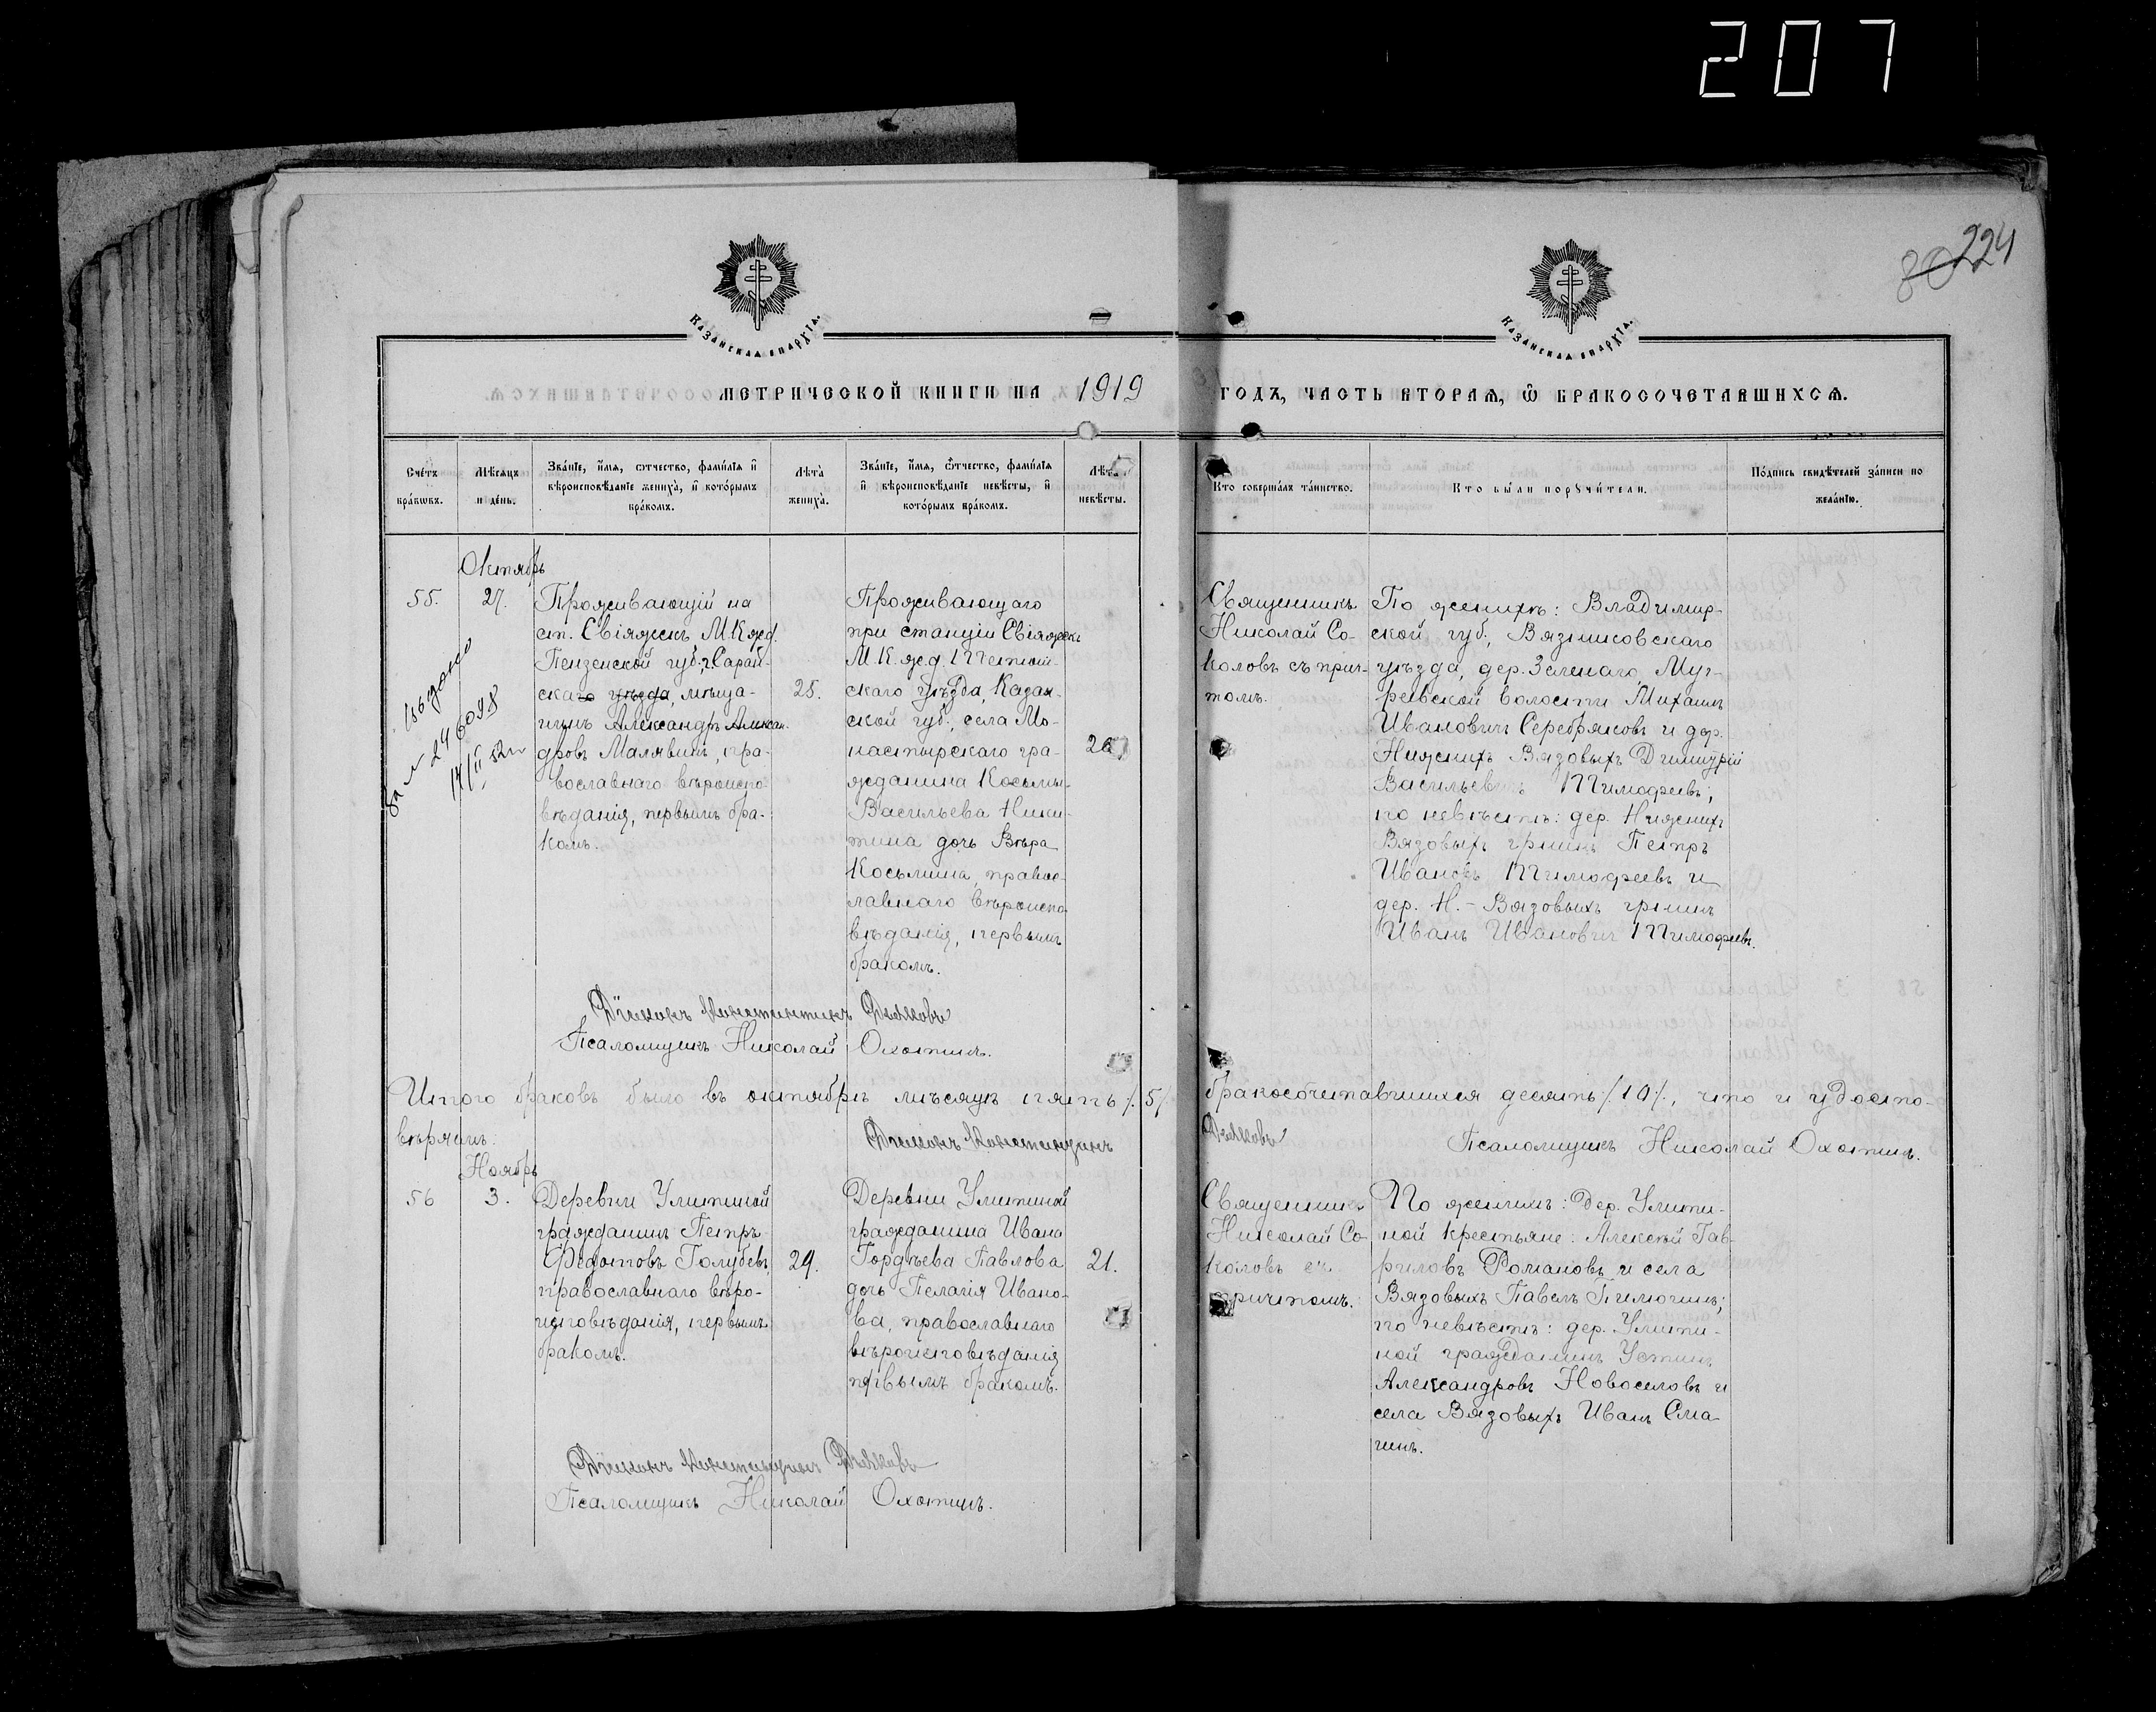 207
80 224
КАЗАНСКАЯ ЕПАРХІЯ.
КАЗАНСКАЯ ЕПАРХІЯ.
МЕТРИЧЕСКОЙ КНИГИ НА 1919 ГОДЪ, ЧАСТЬ ВТОРАЯ, Ѿ БРАКОСОЧЕТАВШИХСЯ.
Счетъ браковъ.
Мѣсяцъ и день.
Званіе, имя, отчество, фамилія и вѣроисповѣданіе жениха, и которымъ бракомъ.
Лѣта жениха.
Званіе, имя, отчество, фамилія и вѣроисповѣданіе невѣсты, и которымъ бракомъ.
Лѣта невѣсты.
Кто совершалъ таинство.
Кто были поручители.
Подпись свидѣтелей записи по желанію.
Октябрь
55.
27.
Проживающій на
ст. Свіяжскъ М.К.ж.д.
Пензенской губ., г. Саран-
скаго уѣзда, мѣща-
нинъ Александръ Алексан-
дровъ Малявинъ, пра-
вославнаго вѣроиспо-
вѣданія, первымъ бра-
комъ.
25.
Проживающаго
при станціи Свіяжскъ
М.К.ж.д. Тетюш-
скаго уѣзда, Казан-
ской губ., села Мо-
настырскаго гра-
жданина Косьмы
Васильева Ники-
тина дочь Вѣра
Косьмина, правос-
лавнаго вѣроиспо-
вѣданія, первымъ
бракомъ.
20
Священникъ
Николай Со-
коловъ съ прич-
томъ.
По женихѣ: Владимір-
ской губ., Вязниковскаго
уѣзда, дер. Зеленаго, Муг-
реевской волости Михаилъ
Ивановичъ Серебряковъ и дер.
Нижнихъ Вязовыхъ Димитрій
Васильевичъ Тимофеевъ;
по невѣстѣ: дер. Нижнихъ
Вязовыхъ гр-нинъ Петръ
Ивановъ Тимофеевъ и
дер. Н.-Вязовыхъ гр-нинъ
Иванъ Ивановичъ Тимофеевъ.
Выдано
за № 246098
14/II 52 г
Діаконъ Константинъ Дьяковъ
Псаломщикъ Николай Охотинъ.
Итого браковъ было въ октябрѣ мѣсяцѣ пять /.5/. бракосочетавшихся десять /.10/., что и удосто-
вѣряемъ: Діаконъ Константинъ Дьяковъ Псаломщикъ Николай Охотинъ.
Ноябрь
56
3.
Деревни Улитиной
гражданинъ Петръ
Федотовъ Голубевъ,
православнаго вѣро-
исповѣданія, первымъ
бракомъ.
29.
Деревни Улитиной
гражданина Ивана
Гордѣева Павлова
дочь Пелагія Ивано-
ва, православнаго
вѣроисповѣданія
первымъ бракомъ.
21.
Священникъ
Николай Со-
коловъ съ
причтомъ.
По женихѣ: дер. Улити-
ной крестьяне: Алексѣй Гав-
риловъ Романовъ и села
Вязовыхъ Павелъ
по невѣстѣ: дер. Улити-
ной гражданинъ Устинъ
Александровъ Новоселовъ и
села Вязовыхъ Иванъ Сма-
гинъ.
Діаконъ Константинъ Дьяковъ
Псаломщикъ Николай Охотинъ.